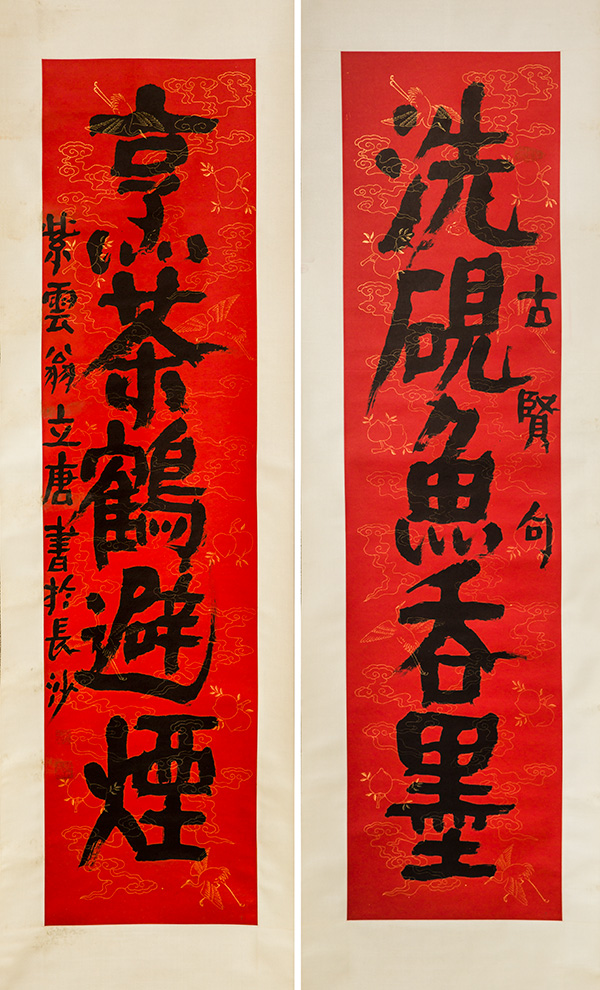 古賢句
洗硯魚吞墨
烹茶鶴避煙
紫雲翁立唐書於長沙